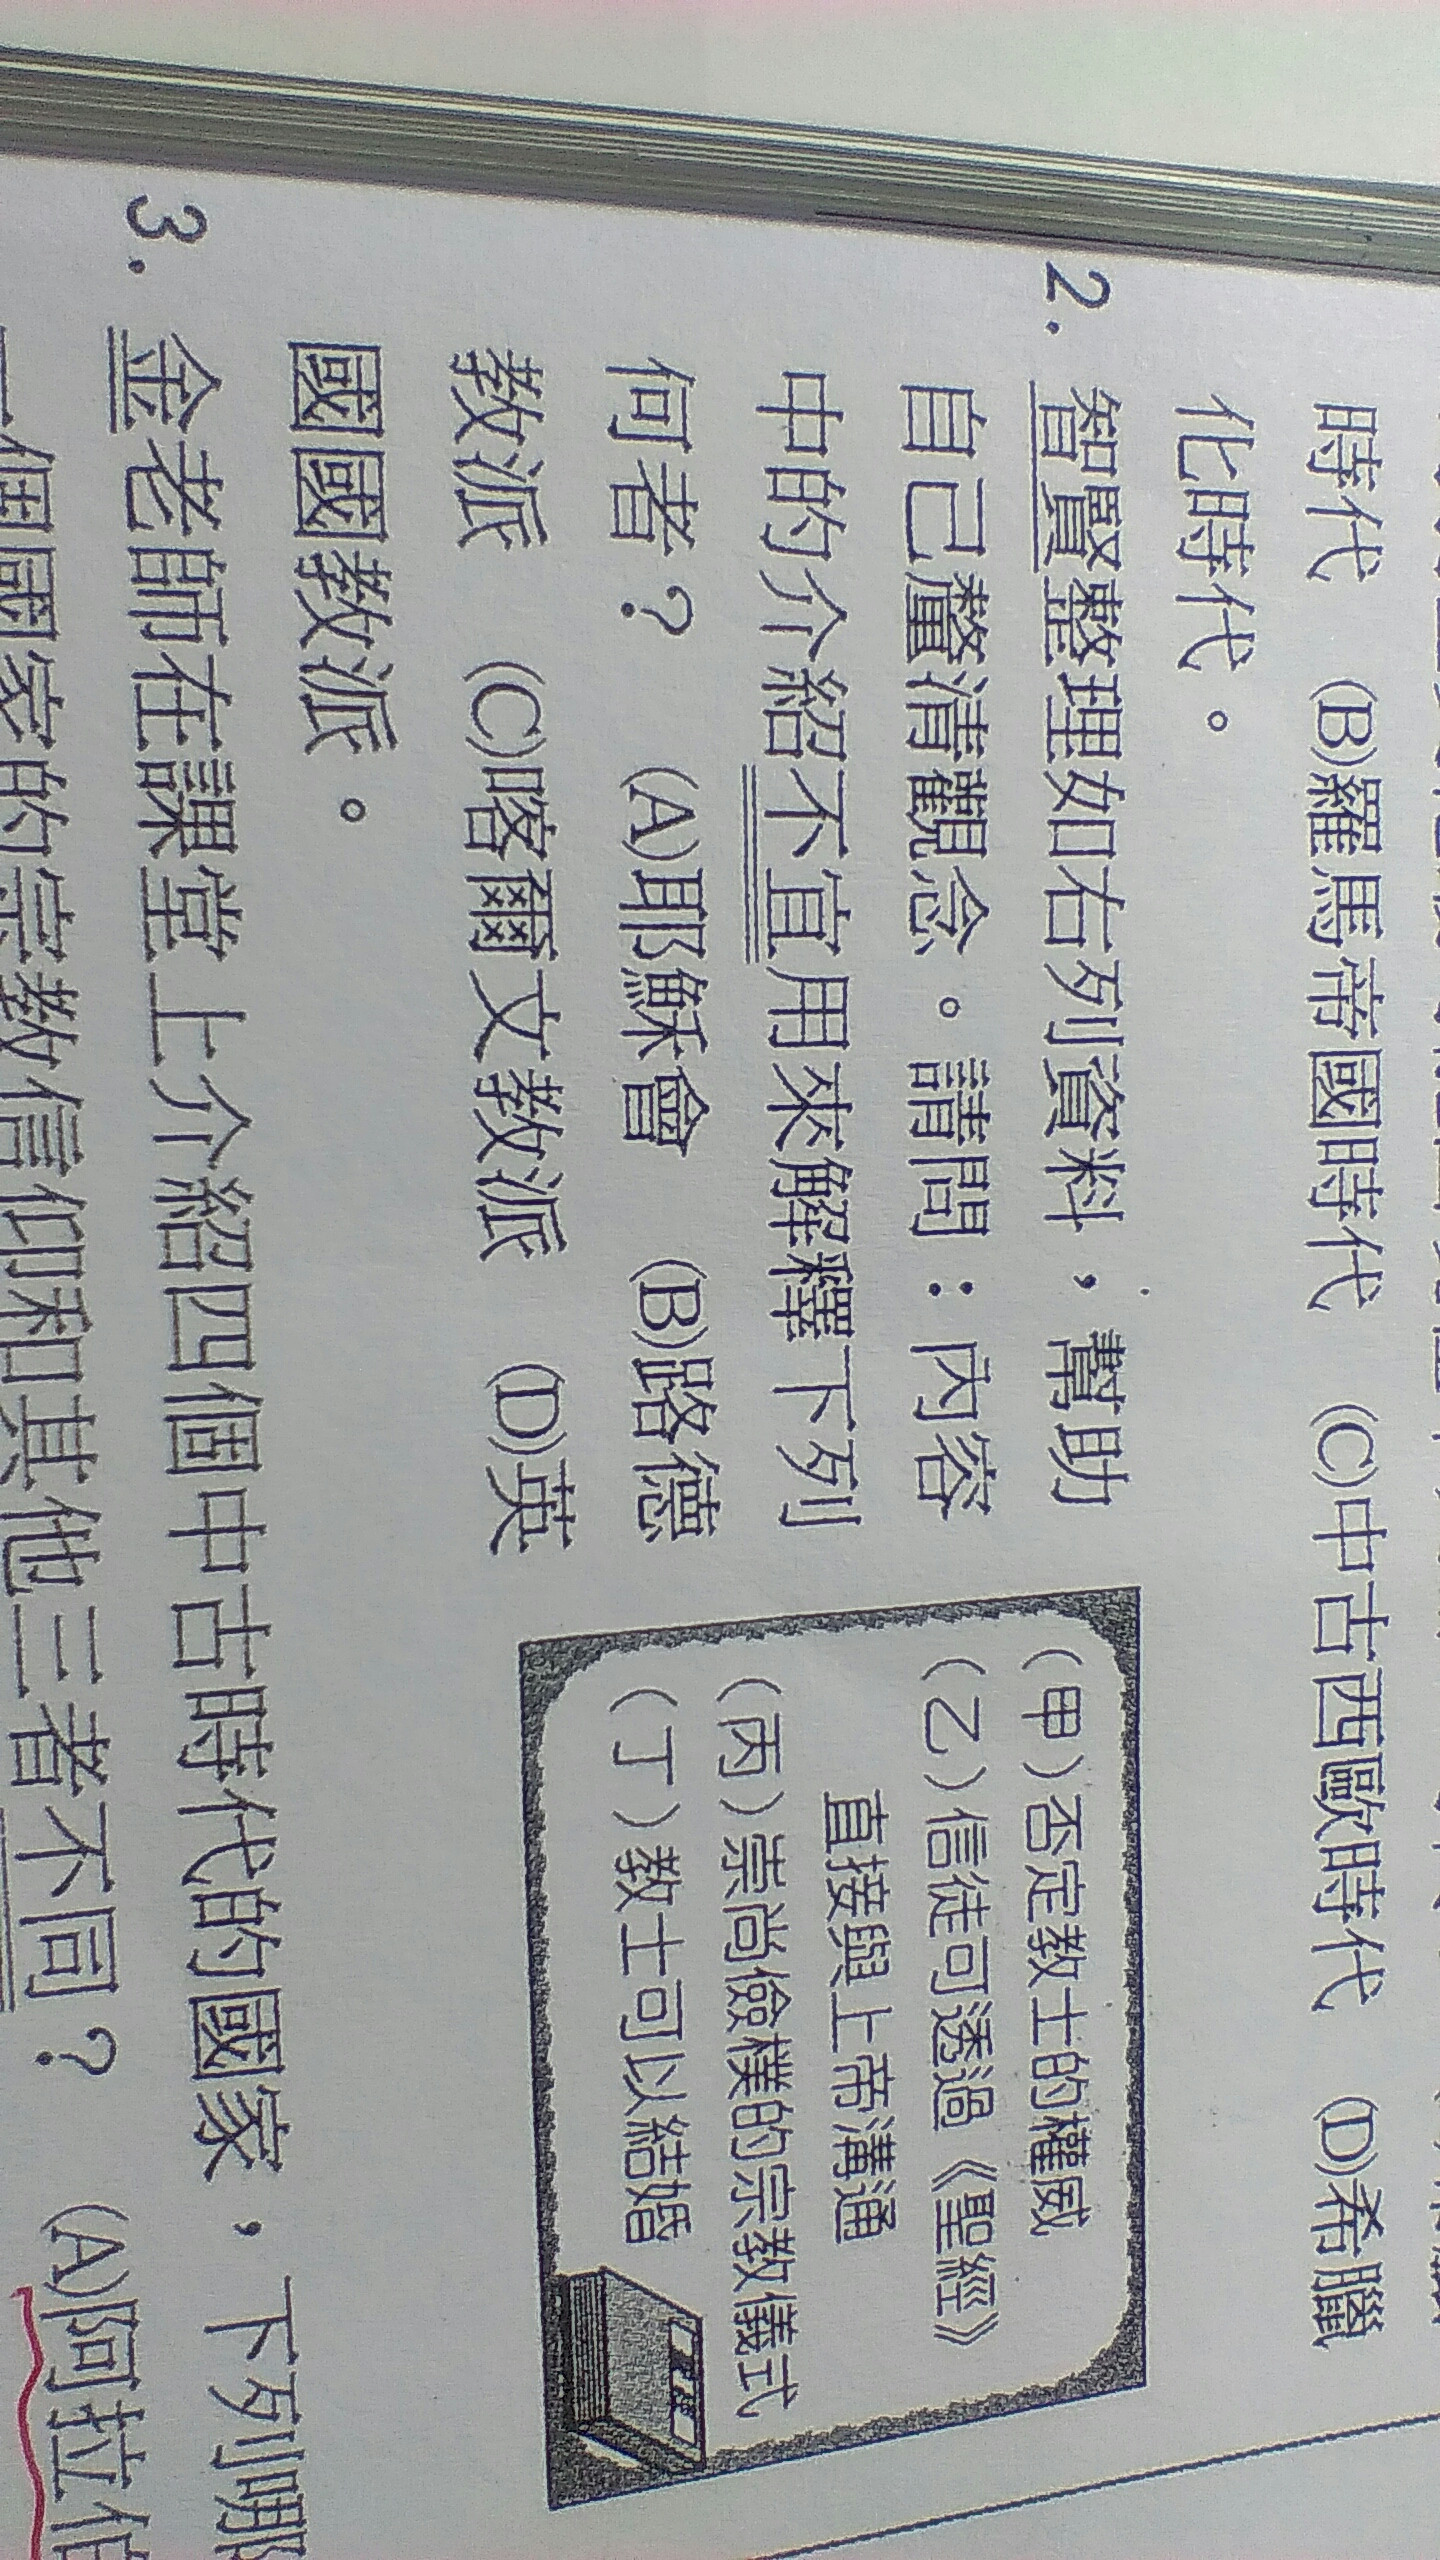 時代　(B)羅馬帝國時代　(C)中古西歐時代　(D)希臘
化時代。
2. 智賢整理如右列資料，幫助
自己釐清觀念。請問：內容
中的介紹不宜用來解釋下列
何者？　(A)耶穌會　(B)路德
教派　(C)喀爾文教派　(D)英
國國教派。
（甲）否定教士的權威
（乙）信徒可透過《聖經》
直接與上帝溝通
（丙）崇尚儉樸的宗教儀式
（丁）教士可以結婚
3. 金老師在課堂上介紹四個中古時代的國家，下列哪
一個國家的宗教信仰和其他三者不同？　(A)阿拉伯